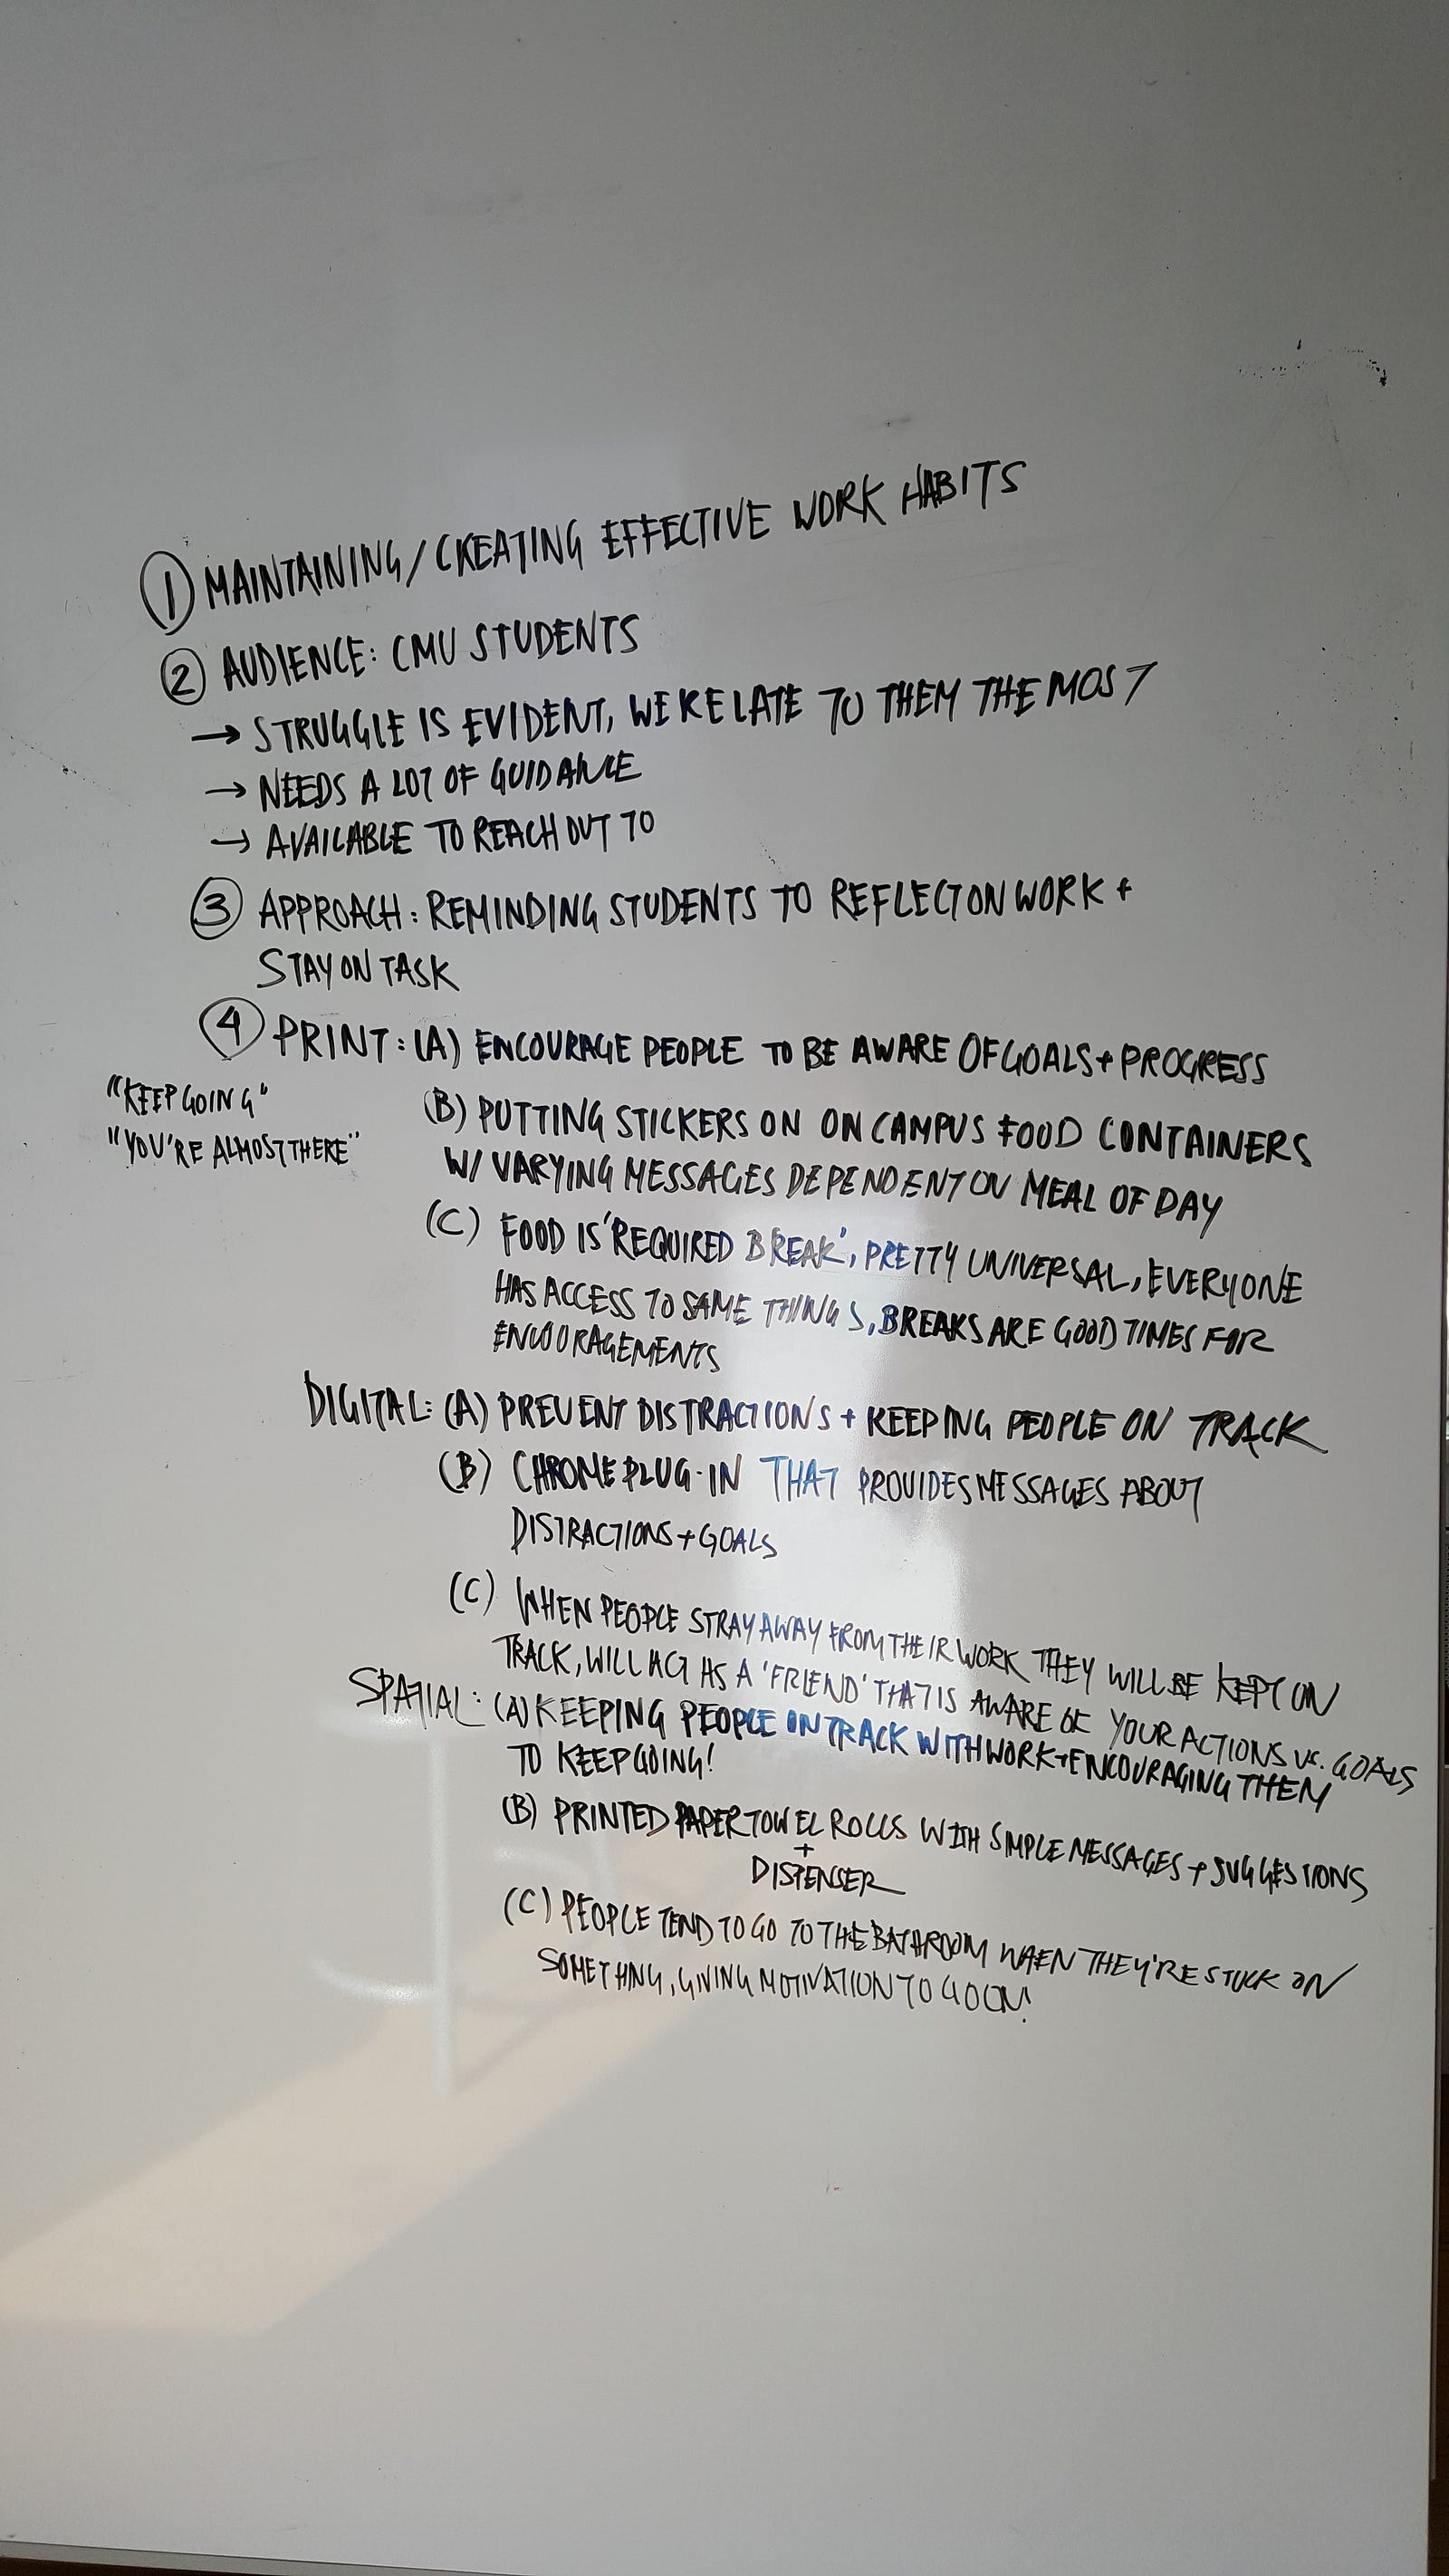 ① MAINTAINING/CREATING EFFECTIVE WORK HABITS
② AUDIENCE: CMU STUDENTS
→ STRUGGLE IS EVIDENT, WE RELATE TO THEM THE MOST
→ NEEDS A LOT OF GUIDANCE
→ AVAILABLE TO REACH OUT TO
③ APPROACH: REMINDING STUDENTS TO REFLECT ON WORK +
STAY ON TASK
④ PRINT: (A) ENCOURAGE PEOPLE TO BE AWARE OF GOALS + PROGRESS
"KEEP GOING"
"YOU'RE ALMOST THERE"
(B) PUTTING STICKERS ON ON CAMPUS FOOD CONTAINERS
W/ VARYING MESSAGES DEPENDENT ON MEAL OF DAY
(C) FOOD IS 'REQUIRED BREAK', PRETTY UNIVERSAL, EVERYONE
HAS ACCESS TO SAME THINGS, BREAKS ARE GOOD TIMES FOR
ENCOURAGEMENTS
DIGITAL: (A) PREVENT DISTRACTIONS + KEEPING PEOPLE ON TRACK
(B) CHROME PLUG-IN THAT PROVIDES MESSAGES ABOUT
DISTRACTIONS + GOALS
(C) WHEN PEOPLE STRAY AWAY FROM THEIR WORK THEY WILL BE KEPT ON
TRACK, WILL ACT AS A 'FRIEND' THAT IS AWARE OF YOUR ACTIONS VS. GOALS
SPATIAL: (A) KEEPING PEOPLE ON TRACK WITH WORK + ENCOURAGING THEM
TO KEEP GOING!
(B) PRINTED PAPER TOWEL ROLLS WITH SIMPLE MESSAGES + SUGGESTIONS
+
DISPENSER
(C) PEOPLE TEND TO GO TO THE BATHROOM WHEN THEY'RE STUCK ON
SOMETHING, GIVING MOTIVATION TO GO ON!